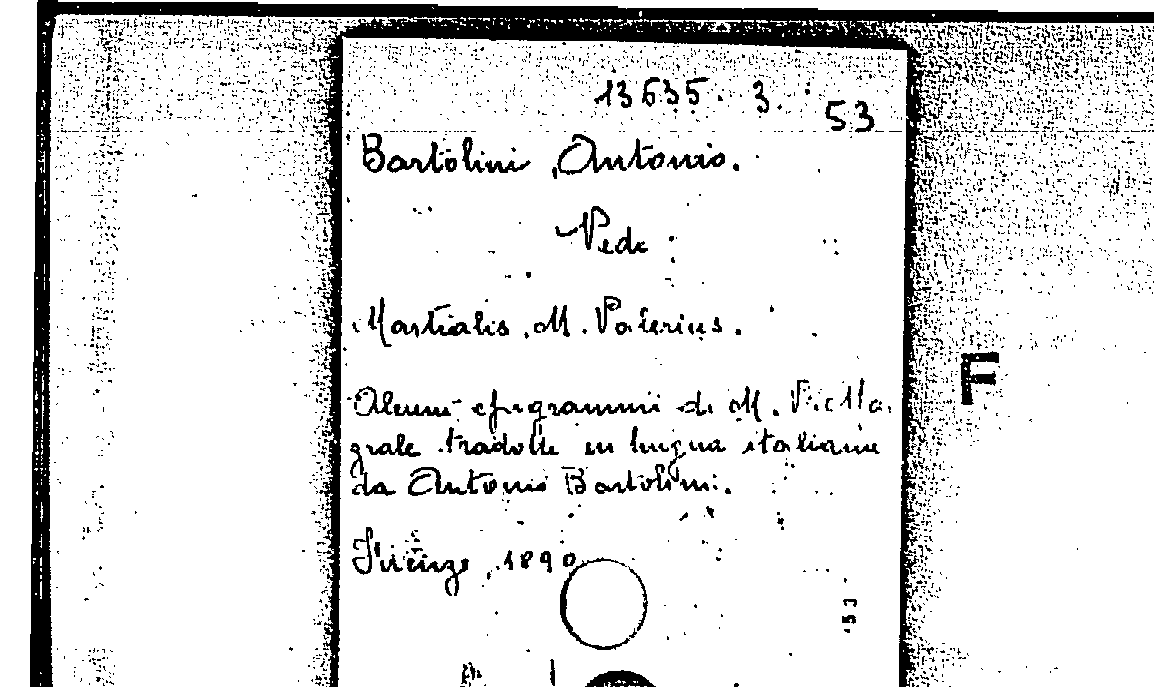 13635. 3. 53
Bartolini, Antonio.
Vedi :
Martialis, M. Valerius.
Alcuni epigrammi di M.
tradotti in lingua italiana
da Antonio Bartolini.
Firenze, 1890
F
53